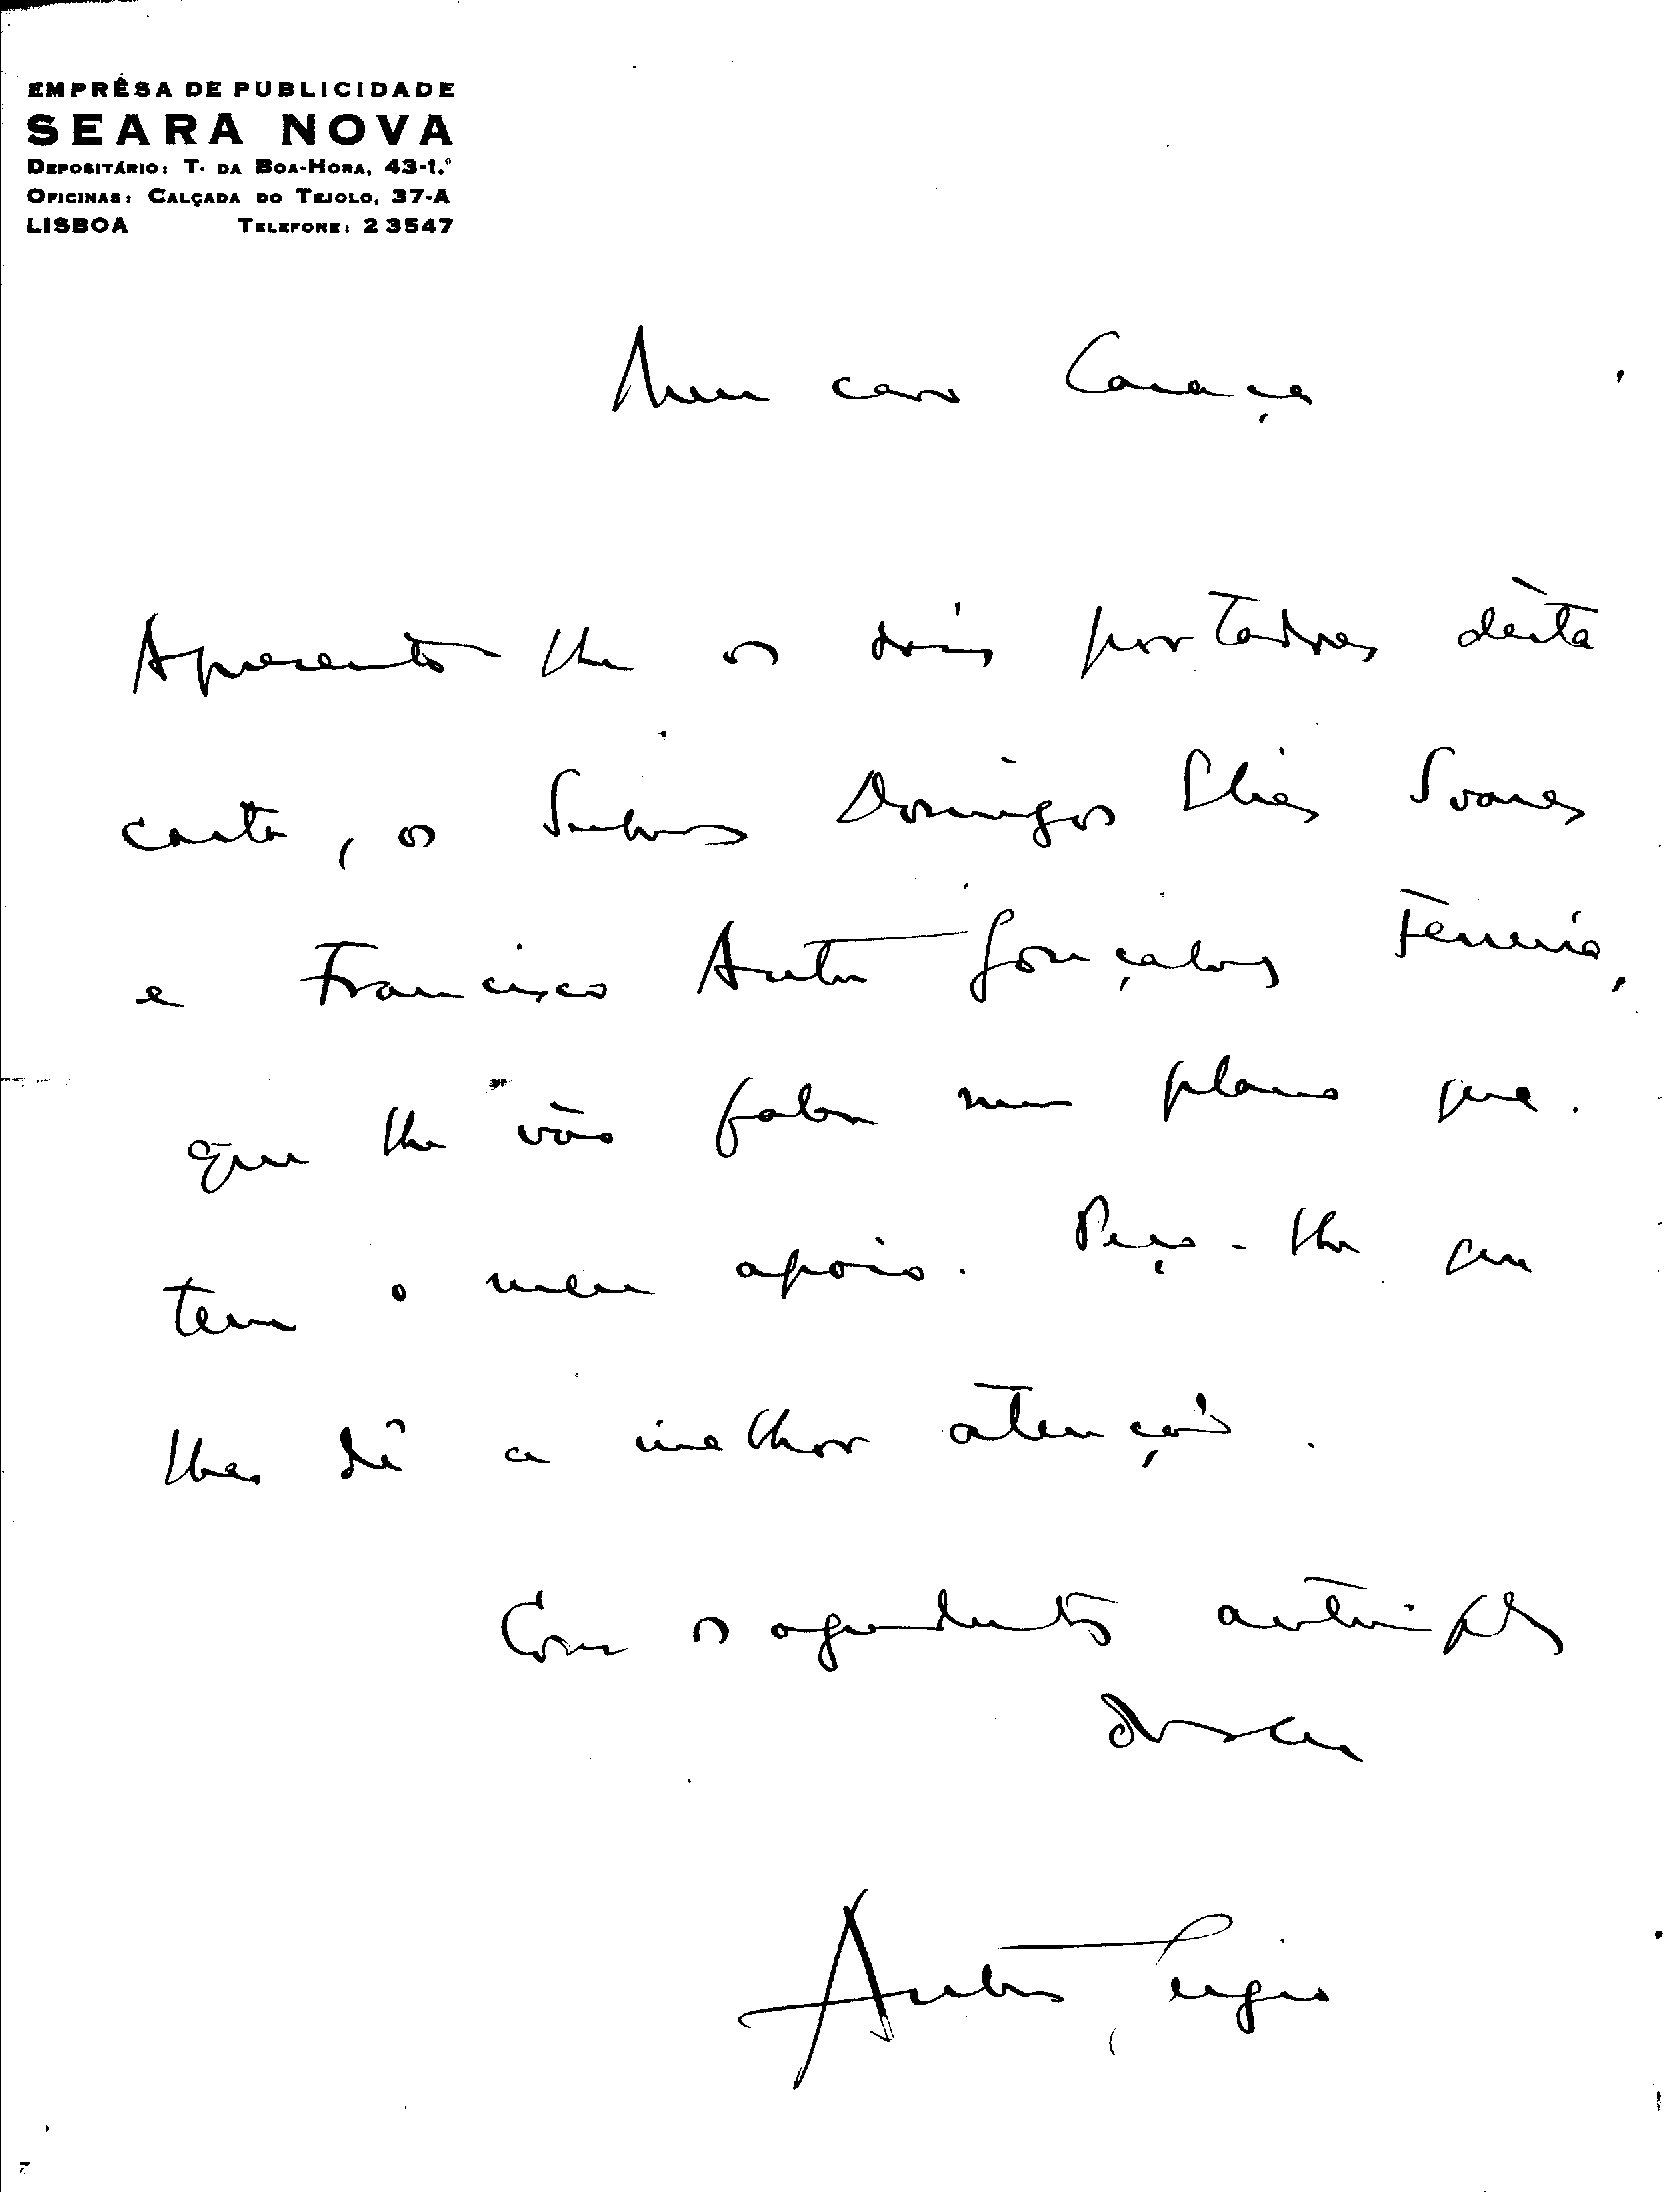 EMPRÊSA DE PUBLICIDADE
SEARA NOVA
DEPOSITÁRIO: T. DA BOA-HORA, 43-1.º
OFICINAS: CALÇADA DO TEJOLO, 37-A
LISBOA TELEFONE: 2 3547
Meu caro Caraça
Apresento-lhe os dois portadores desta
carta, os Senhores Domingos Elias Soares
e Francisco António Gonçalves Ferreira,
que lhe vão falar num plano que
tem o meu apoio. Peço-lhe que
lhes dê a melhor atenção.
Com os agradecimentos antecipados
do seu
António Sérgio